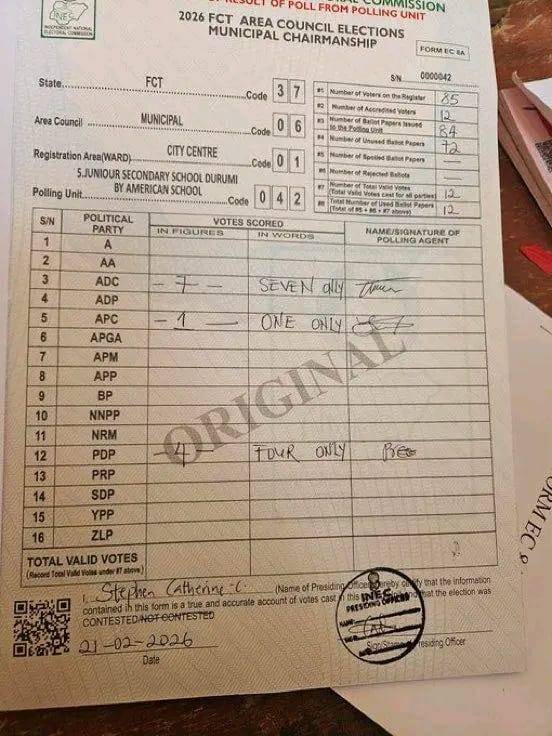 COMMISSION
OF RESULT OF POLL FROM POLLING UNIT
INEC
INDEPENDENT NATIONAL
ELECTORAL COMMISSION
2026 FCT AREA COUNCIL ELECTIONS
MUNICIPAL CHAIRMANSHIP
FORM EC 8A
S/N 0000042
State FCT Code 3 7
Area Council MUNICIPAL Code 0 6
Registration Area(WARD) CITY CENTRE Code 0 1
5.JUNIOUR SECONDARY SCHOOL DURUMI
Polling Unit BY AMERICAN SCHOOL Code 0 4 2
#1 Number of Voters on the Register 85
#2 Number of Accredited Voters 12
#3 Number of Ballot Papers Issued to the Polling Unit 84
#4 Number of Unused Ballot Papers 72
#5 Number of Spoiled Ballot Papers —
#6 Number of Rejected Ballots —
#7 Number of Total Valid Votes (Total Valid Votes cast for all parties) 12
#8 Total Number of Used Ballot Papers (Total of #5 + #6 + #7 above) 12
S/N POLITICAL PARTY VOTES SCORED NAME/SIGNATURE OF POLLING AGENT
IN FIGURES IN WORDS
1 A
2 AA
3 ADC - 7 - SEVEN ONLY
4 ADP
5 APC - 1 - ONE ONLY
6 APGA
7 APM
8 APP
9 BP
10 NNPP
11 NRM
12 PDP - 4 FOUR ONLY
13 PRP
14 SDP
15 YPP
16 ZLP
ORIGINAL
TOTAL VALID VOTES
(Record Total Valid Votes under #7 above)
I, Stephen Catherine .C. (Name of Presiding Officer) hereby certify that the information
contained in this form is a true and accurate account of votes cast in this and that the election was
CONTESTED/NOT CONTESTED
21-02-2026
Date
INEC
PRESIDING OFFICER
NAME:
Sign/Stamp Presiding Officer
FORM EC 8